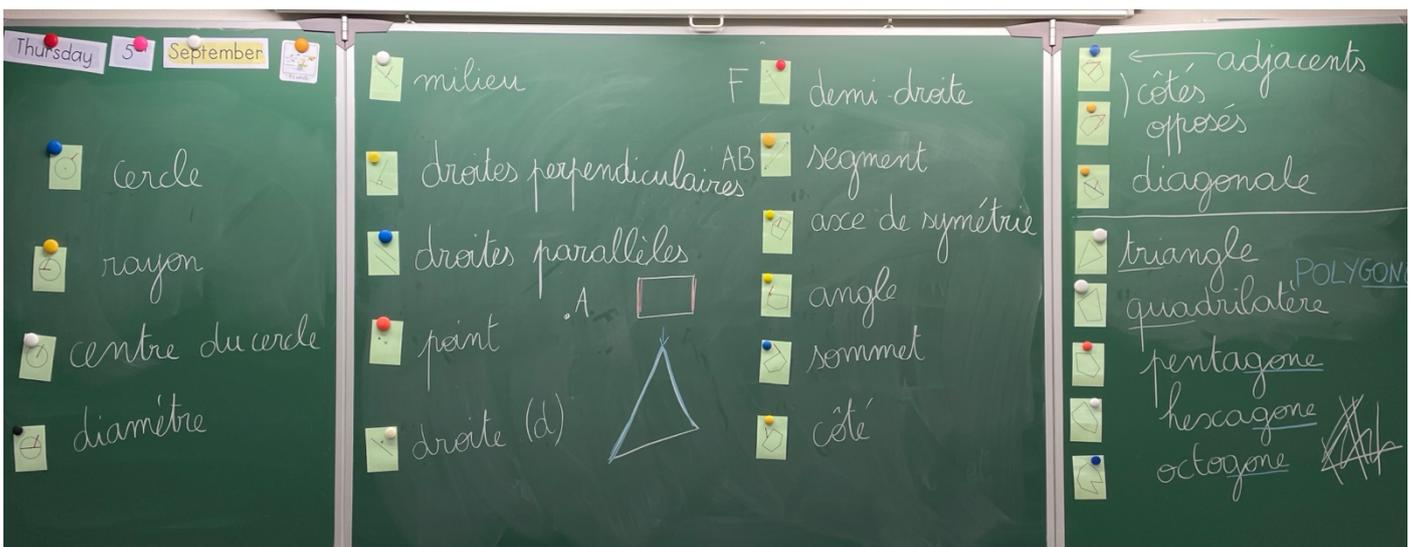 Thursday 5th September
cercle
rayon
centre du cercle
diamétre
milieu
droites perpendiculaires
droites parallèles
A
point
droite (d)
F demi-droite
AB segment
axe de symétrie
angle
sommet
côté
adjacents
) côtés
opposés
diagonale
triangle
POLYGON
quadrilatère
pentagone
hexagone
octogone